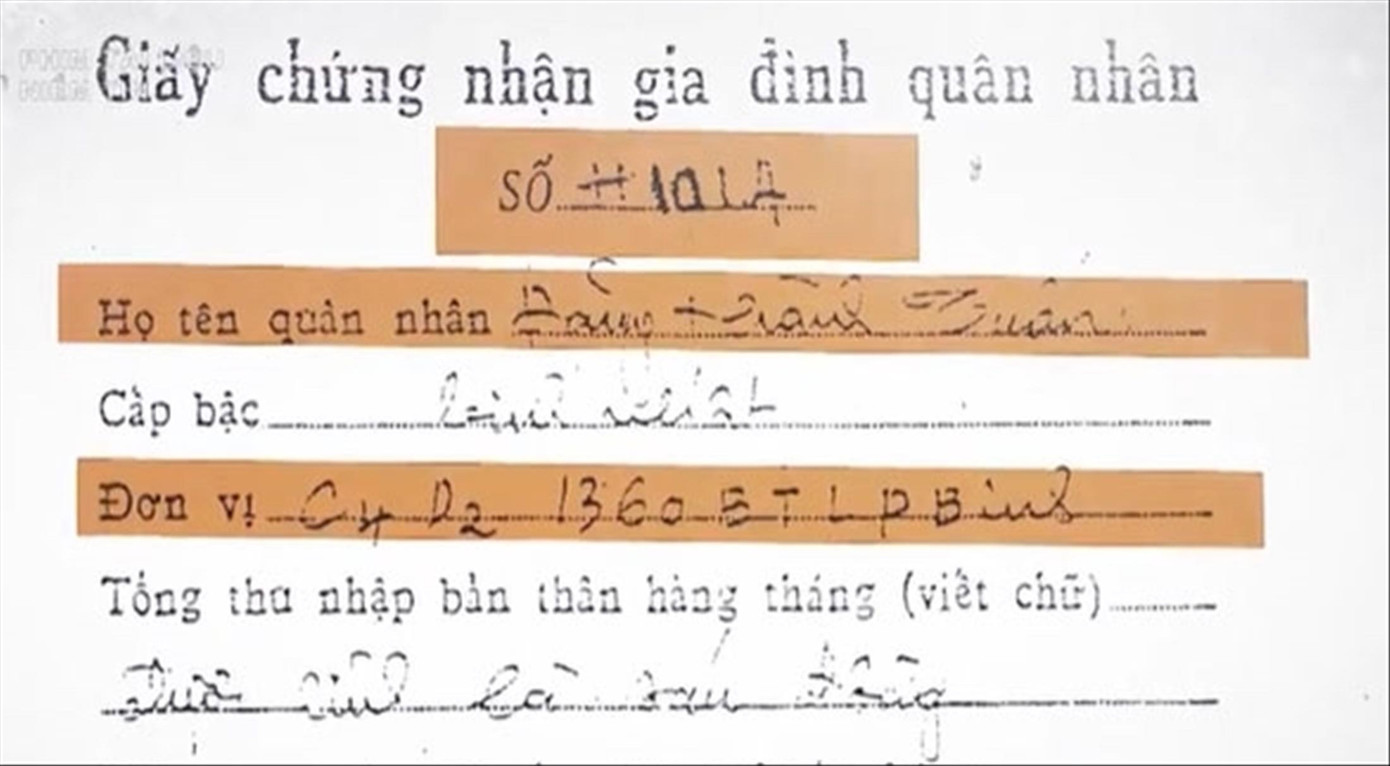 Giấy chứng nhận gia đình quân nhân
Số # 1014
Họ tên quân nhân Đặng Thành Tuấn
Cấp bậc binh nhất
Đơn vị C4 D2 1360 BTLPBinh
Tổng thu nhập bản thân hàng tháng (viết chữ)
là sáu đồng